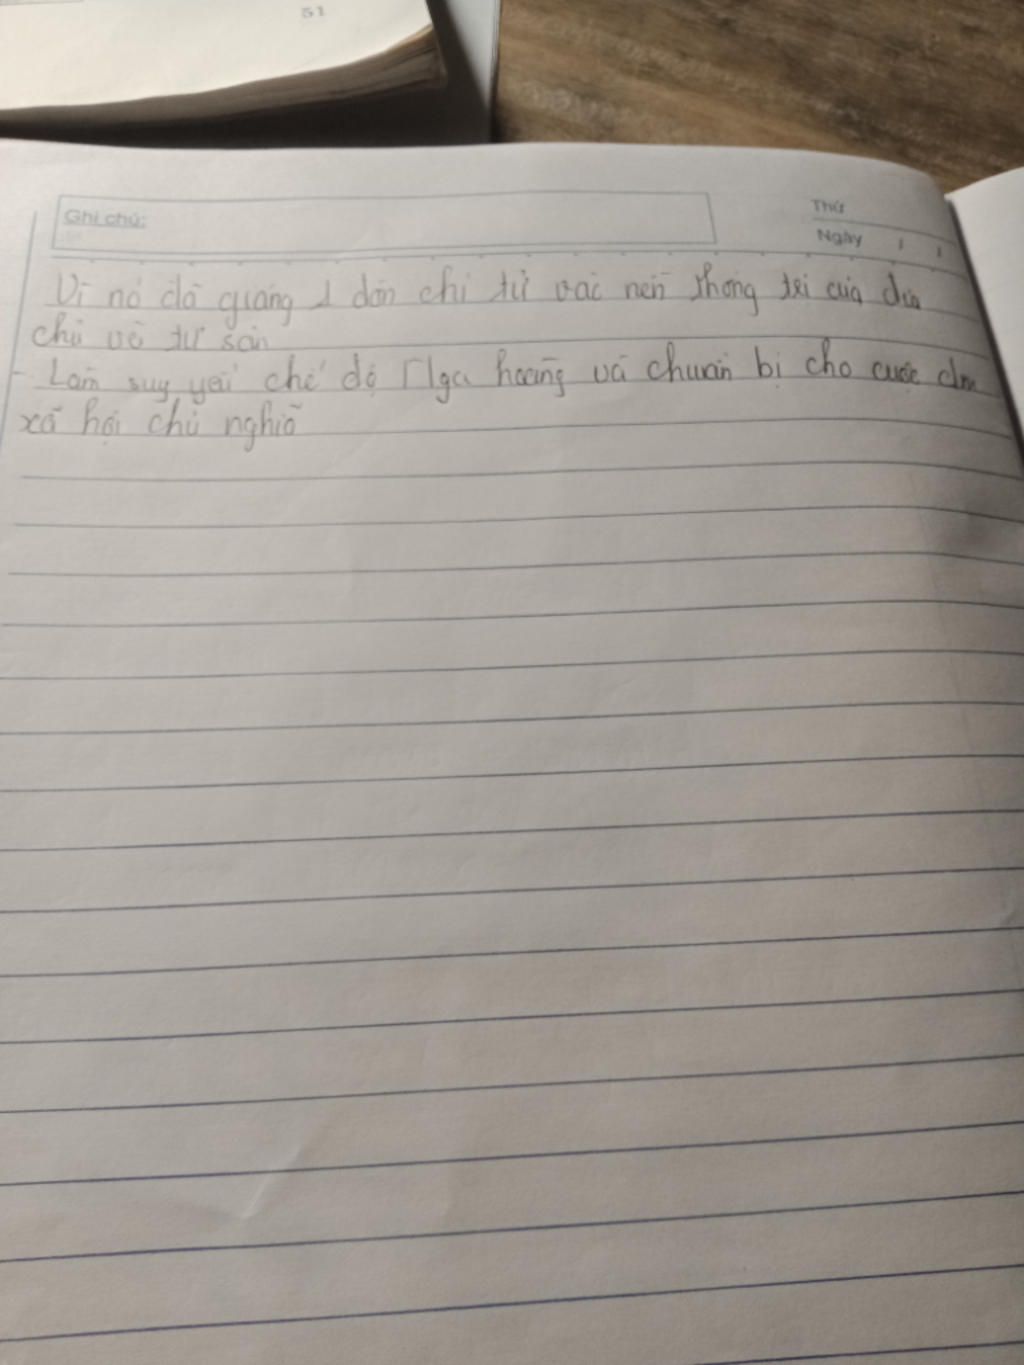 51
Ghi chú:
Thứ
Ngày / /
Vì nó đã giáng 1 đòn chí tử vào nền thống trị của địa
chủ và tư sản
- Làm suy yếu chế độ Nga hoàng và chuẩn bị cho cuộc dm
xã hội chủ nghĩa